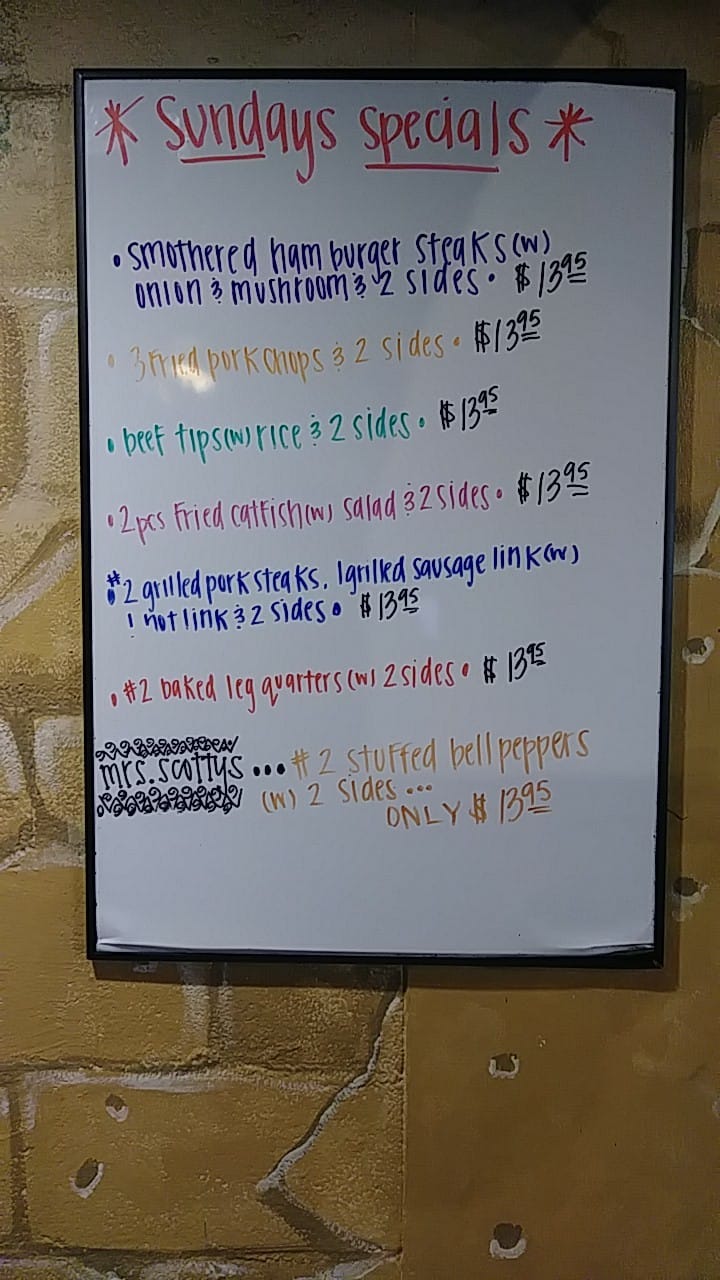 * Sundays specials *
• smothered hamburger steaks (w)
onion & mushroom & 2 sides • $13.95
• 3 fried pork chops & 2 sides • $13.95
• beef tips (w) rice & 2 sides • $13.95
• 2pcs fried catfish (w) salad & 2 sides • $13.95
# 2 grilled pork steaks, 1 grilled sausage link (w)
1 hot link & 2 sides • $13.95
• #2 baked leg quarters (w) 2 sides • $13.95
mrs. scottys ... # 2 stuffed bell peppers
(w) 2 sides ...
ONLY $13.95